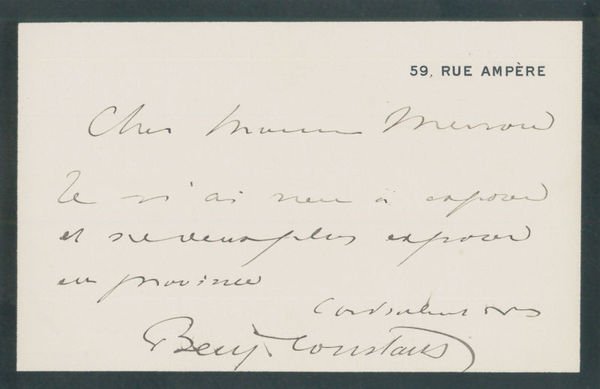 59, RUE AMPÈRE
Cher Monsieur
Je n'ai rien à exposer
et ne veux plus exposer
en province
Cordialement vôtre
Benj. Constant